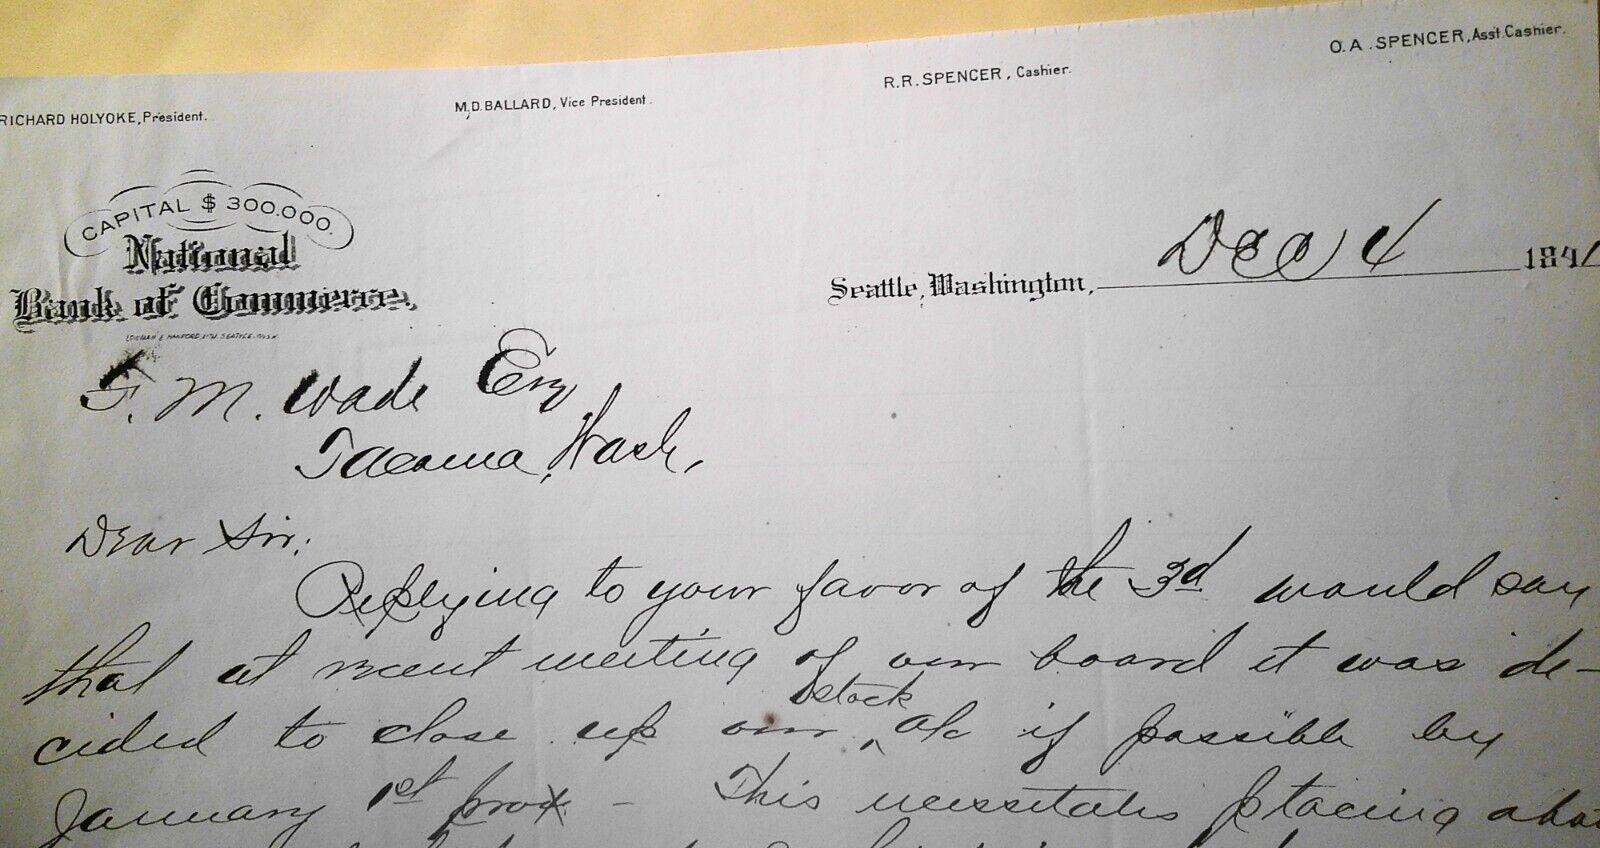 RICHARD HOLYOKE, President.
M.D. BALLARD, Vice President.
R.R. SPENCER, Cashier.
O.A. SPENCER, Asst. Cashier.
CAPITAL $300.000.
National
Bank of Commerce.
Seattle, Washington, Dec 4 1891
F. M. Wade Esq
Tacoma, Wash,
Dear Sir:
Replying to your favor of the 3d would say
that at recent meeting of our board it was de-
cided to close up our stock a/c if possible by
January 1st prox - This necessitates placing